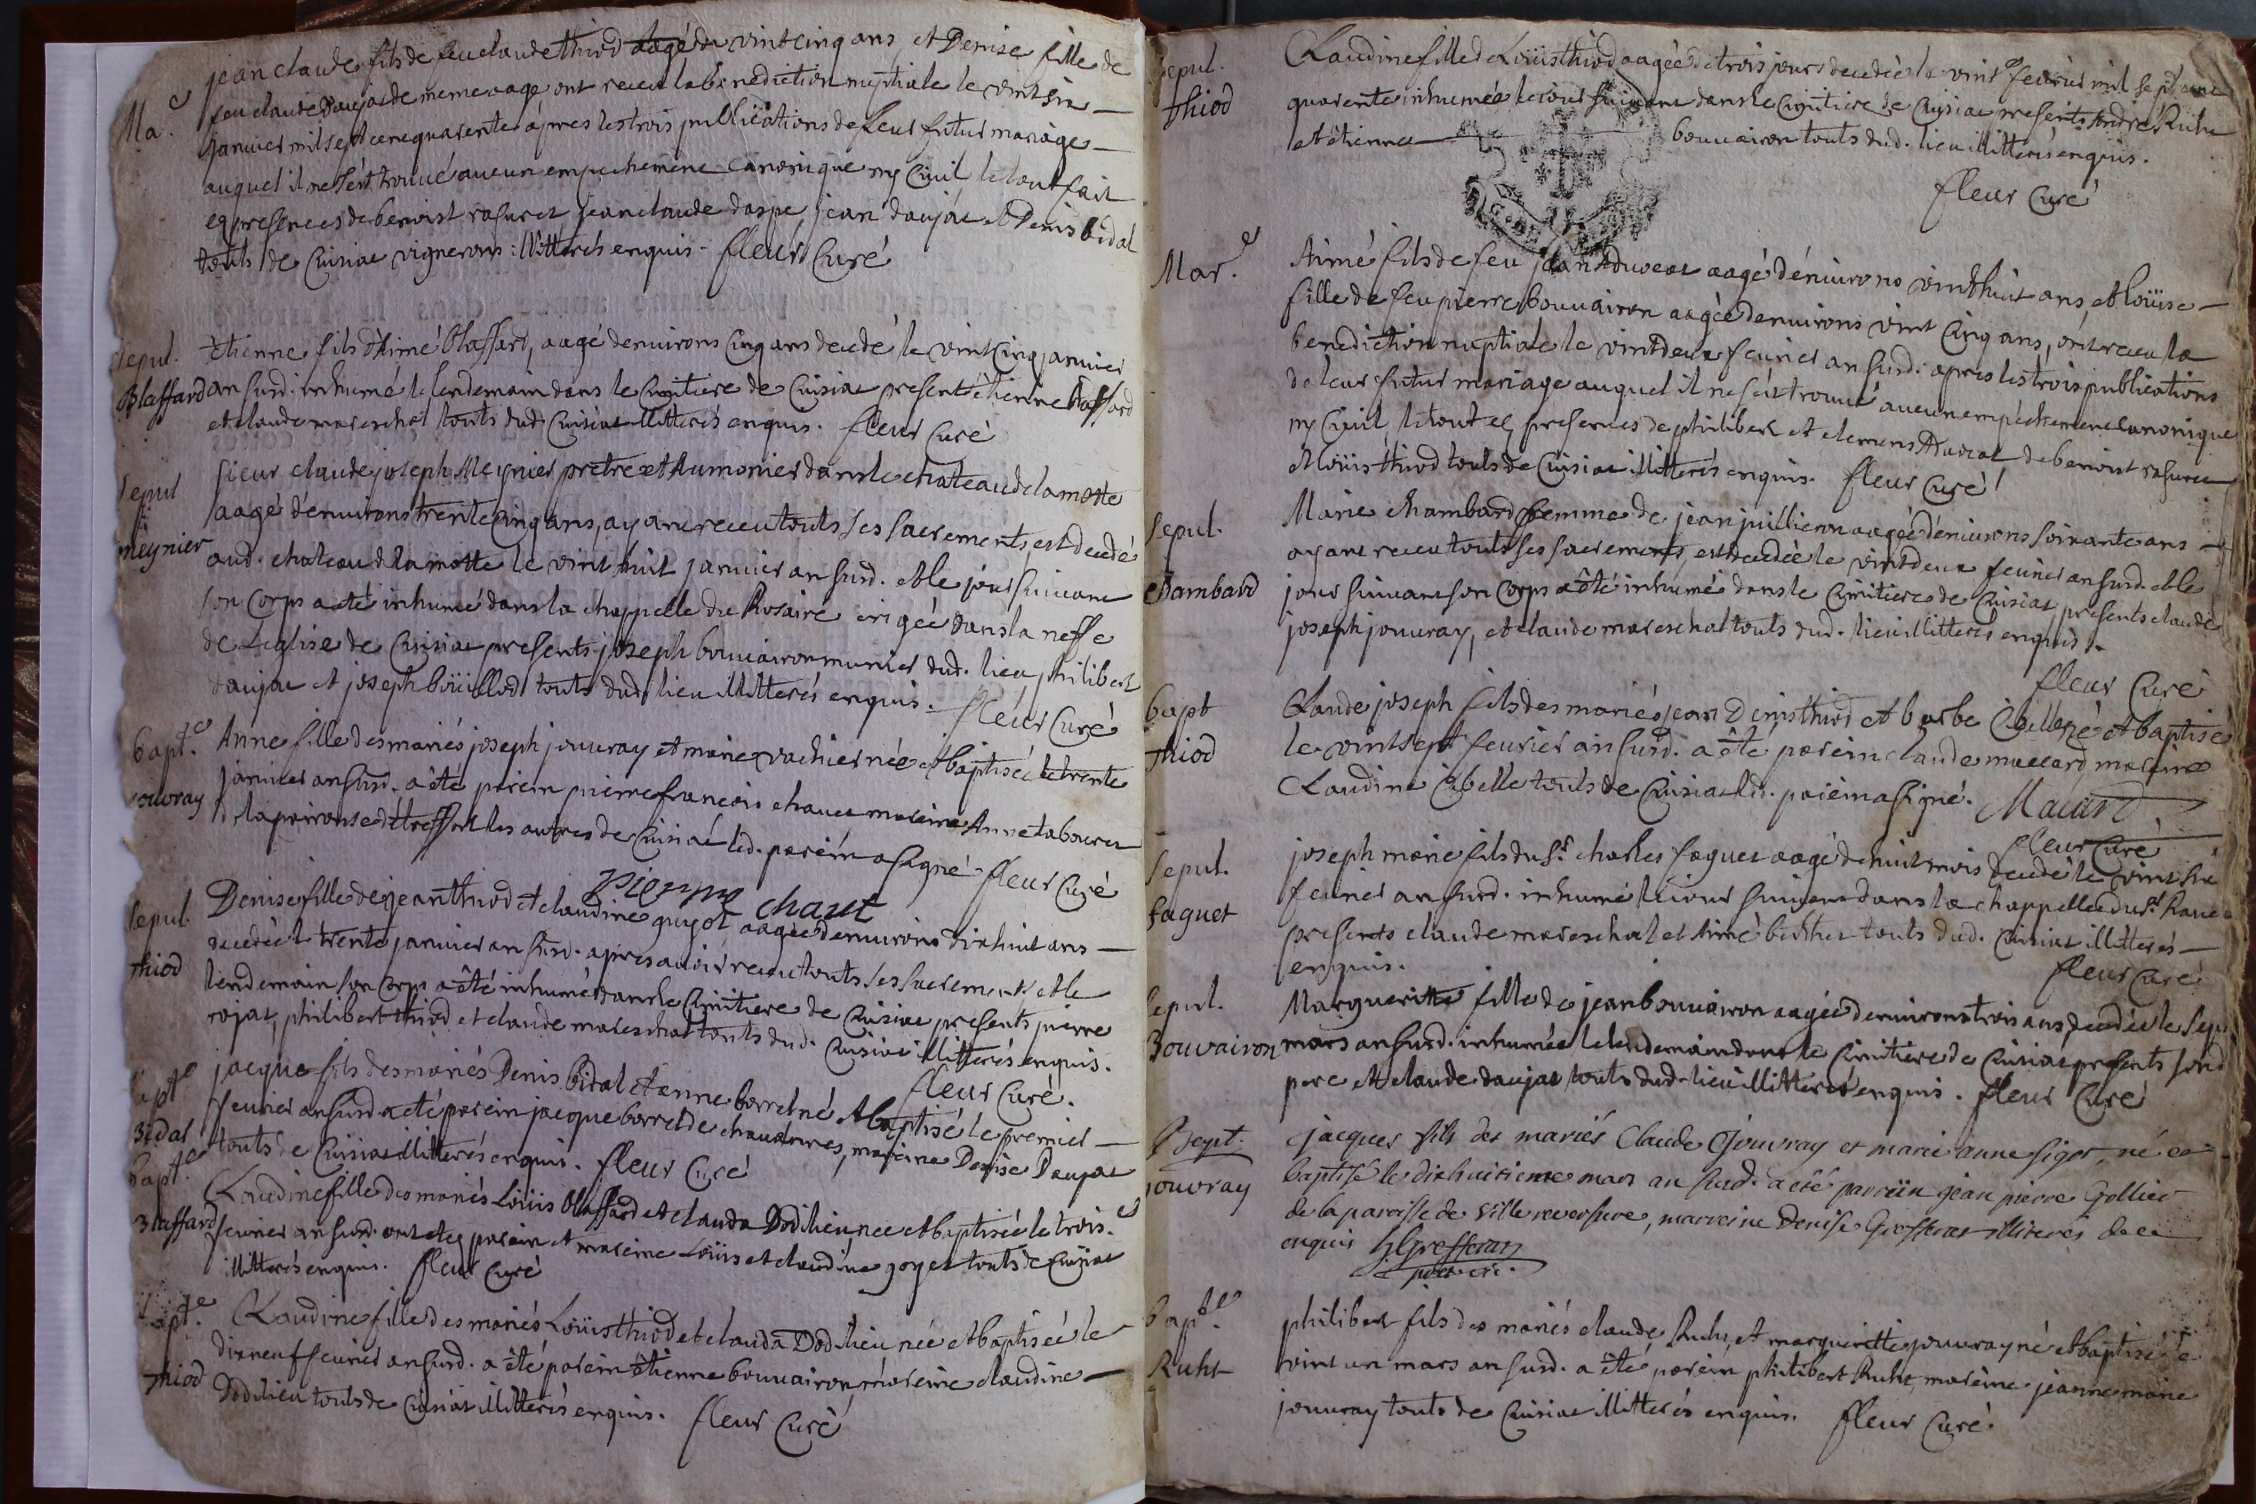 jean claude fils de feu claude thiod aagé de vint cinq ans et Denise fille de
Ma.e
feu claude daujat de meme aage ont receu la benediction nuptiale le vint six
janvier mil sept cent quarente après les trois publications de leur futur mariage
auquel il ne s'est trouvé aucun empechement canonique ny civil le tout fait
en presences de benoist rasurel jean claude daspe, jean daujat et Denis bidal
touts de Cuisiat vignerons illitterés enquis. fleur Curé
sepul. Blaffard
Etienne fils d'Aimé Blaffard, aagé d'environs Cinq ans decedé le vint Cinq janvier
an susd. inhumé le lendemain dans le Cimitiere de Cuisiat present etienne blaffard
et claude mareschal touts dud. Cuisiat illitterés enquis. fleur Curé
sepul meynier
sieur claude joseph Meynier pretre et Aumonier dans le chateau de la motte
aagé d'environs trente Cinq ans, ayant receu touts ses sacrements, est decedé
aud. chateau de la motte le vint huit janvier an susd. et le jour suivant
son corps a eté inhumé dans la chappelle du Rosaire erigée dans la neffe
de L'eglise de Cuisiat presents joseph bouvairon munier dud. lieu, philibert
daujat et joseph boüillod touts dud. lieu illitterés enquis. fleur Curé
bapt.e jouvray
Anne fille des mariés joseph jouvray et marie vachier née et baptisée le trente
janvier an susd. a été parein pierre francois chanut mareine Anne tabouret
de la paroisse de treffort les autres de Cuisiat led. parein a signé fleur Curé
pierre chanut
sepul. thiod
Denise fille de jean thiod et claudine guyot aagée d'environs dix huit ans
decedée le trente janvier an susd. apres avoir receu touts ses sacrements et le
lendemain son corps a été inhumé dans le Cimitiere de Cuisiat presents pierre
rojat, philibert thiod et claude mareschal touts dud. Cuisiat illitterés enquis.
fleur Curé.
bapt.e Bidal
jacque fils des mariés Denis bidal et anne borrel né et baptisé le premier
fevrier an susd. a eté parein jacque borrel de chaudures, mareine Denise Daujat
touts de Cuisiat illitterés enquis. fleur Curé
bapt.e Blaffard
Claudine fille des mariés Loüis Blaffard et clauda Dodilieu née et baptisée le trois.e
fevrier an susd. ont eté parein et mareine Loüis et claudine goyet touts de Cuisiat
illitterés enquis. fleur Curé
bapt.e thiod
Claudine fille des mariés Loüis thiod et clauda Dodilieu née et baptisée le
dixneuf fevrier an susd. a été parein étienne bouvairon, mareine claudine
Dodilieu touts de Cuisiat illitterés enquis. fleur Curé
sepul. thiod
Claudine fille de Loüis thiod aagée de trois jours decedée le vint fevrier mil sept cent
quarente inhumée le jour suivant dans le Cimitiere de Cuisiat presents André Ruhe
et étienne bouvairon touts dud. lieu illitterés enquis.
fleur Curé
Mar.e
Aimé fils de feu jean Aducat aagé d'environs vint huit ans, et loüise
fille de feu pierre bouvairon aagée d'environs vint cinq ans, ont receu la
benediction nuptiale le vint deux fevrier an susd. apres les trois publications
de leur futur mariage auquel il ne s'est trouvé aucun empechement canonique
ny Civil, le tout en presences de philibert et clemens Aducat de benoist rasurel
et loüis thiod touts de Cuisiat illitterés enquis. fleur Curé
sepul. chambard
Marie chambard femme de jean juillieron aagée d'environs soixante ans
ayant receu touts ses sacrements, est decedée le vint deux fevrier an susd. et le
jour suivant son corps a été inhumé dans le Cimitiere de Cuisiat, presents claude
joseph jouvray, et claude mareschal touts dud. lieu illitterés enquis.
fleur Curé
bapt thiod
Claude joseph fils des mariés jean Denis thiod et barbe Cibelle né et baptisé
le vint sept fevrier an susd. a été parein claude maccard mareine
Claudine Cibelle touts de Cuisiat led. parein a signé. Macard
fleur Curé
sepul. faguet
joseph marie fils du Sr. charles faguet aagé de huit mois decedé le vint six
fevrier an susd. inhumé le jour suivant dans la chappelle du Sr.
presents claude mareschal et Aimé berthet touts dud. Cuisiat illitterés
enquis. fleur Curé
sepul. Bouvairon
Marguerite fille de jean bouvairon aagée d'environs trois ans decedée le sept
mars an susd. inhumée le lendemain dans le Cimitiere de Cuisiat presents son d
pere et claude daujat touts dud. lieu illitterés enquis. fleur Curé
Bapt. jouvray
jacques fils des mariés Claude Jouvray et marie anne figet, né et
baptisé le dixhuitieme mars an susd. a été parrein jean pierre Gollier
de la paroisse de villereversure, marreine Denise Grosferat illiterés de ce
enquis Grefferat
bapt.e Ruht
philibert fils des mariés claude Ruht, et margueritte jouvray né et baptisé le
vint un mars an susd. a été parein philibert Ruht, mareine jeanne marie
jouvray touts de Cuisiat illitterés enquis. fleur Curé.